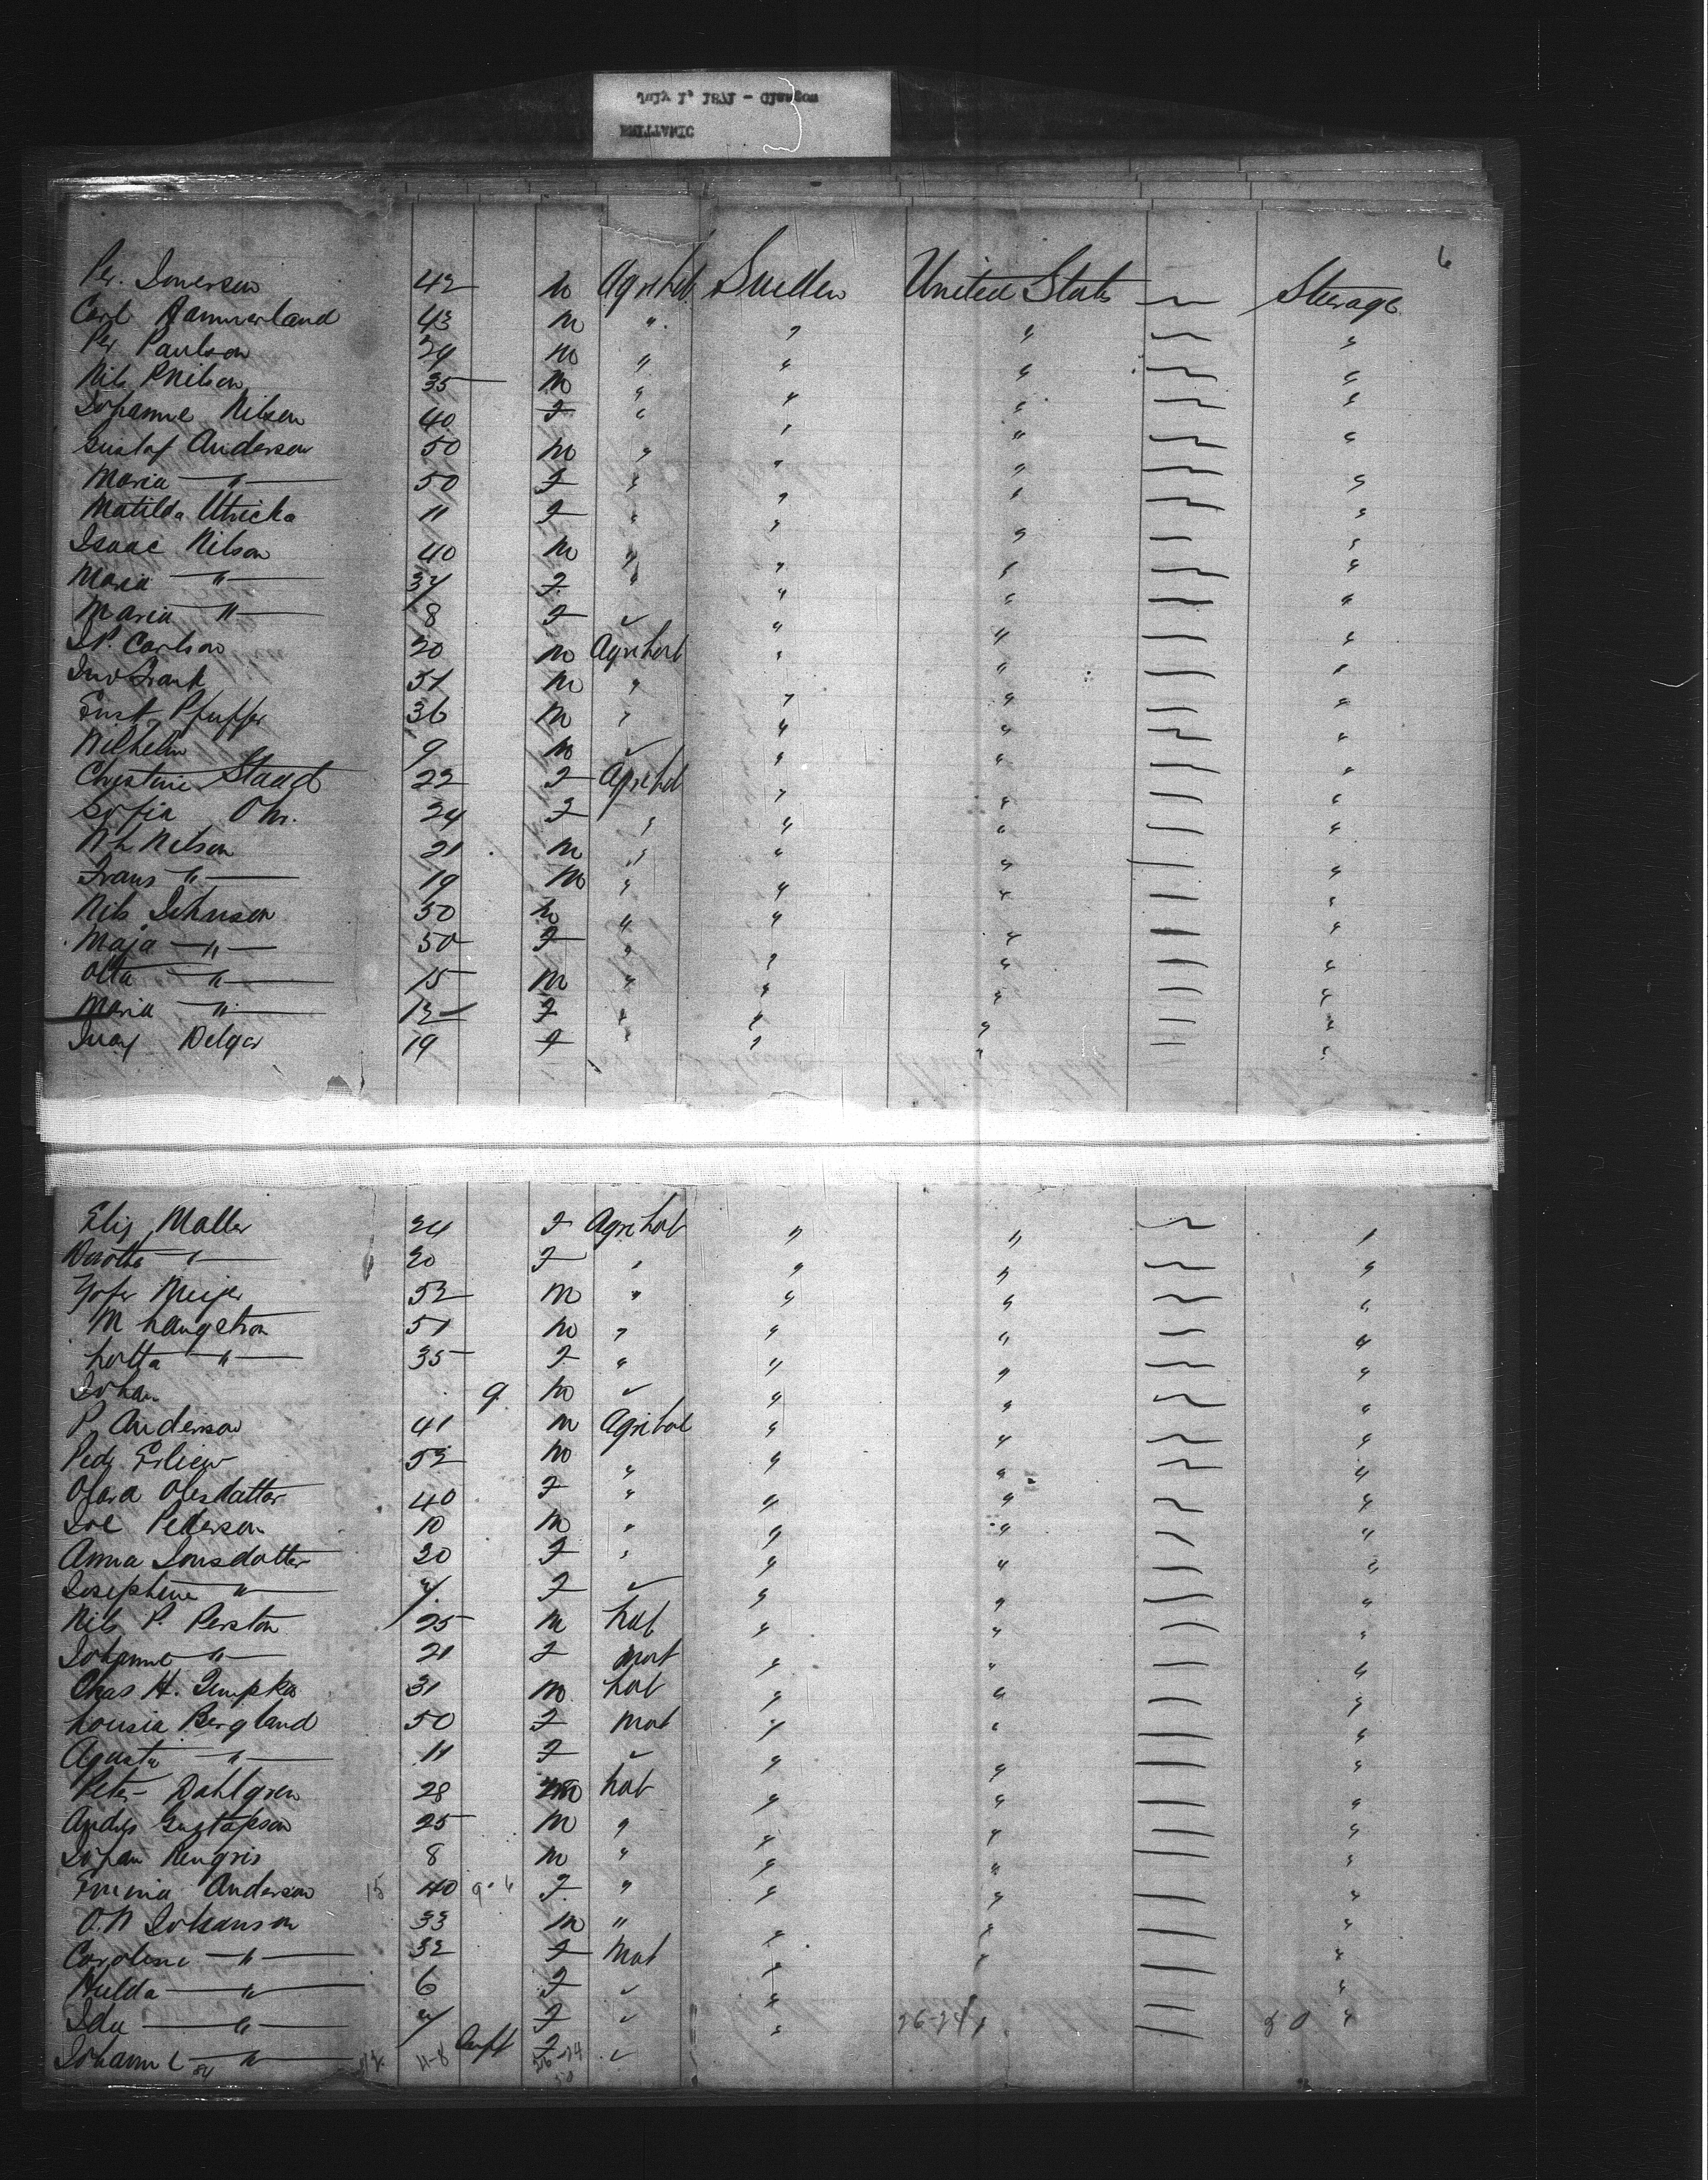 6
Per. Iverson 42 M Agri Lab Sweden United States — Steerage
Carl Hammerland 43 M " " " — "
Per Paulson 24 M " " " — "
Nils P Nilson 35 M " " " — "
Johanne Nilson 40 F " " " — "
Gustaf Anderson 50 M " " " — "
Maria — " — 50 F " " " — "
Matilda Ulricka 11 F " " " — "
Isaac Nilson 40 M " " " — "
Maria — " — 34 F " " " — "
Maria " — 8 F ✓ " " — "
Carlson 20 M Agri Lab " " — "
Frank 31 M " " " — "
Ernst Pfuffer 36 M " " " — "
Wilhelm 9 M ✓ " " — "
Christine Staadt 22 F Agri Lab " " — "
Sofia Ohr. 24 F " " " — "
Nilson 21 M " " " — "
Frans " — 19 M " " " — "
Nils Johnson 50 M " " " — "
Maja — " — 50 F " " " — "
Otto — " — 15 M " " " — "
Maria — " — 12 F " " " — "
Delger 19 F " " " — "
Elis Maller 24 F Agri Lab " " — "
Dorothe " — 20 F " " " — "
Meijer 52 M " " " — "
M Langstron 51 M " " " — "
Lotta — " — 35 F " " " — "
Johan 9 M ✓ " " — "
P. Anderson 41 M Agri Lab " " — "
52 M " " " — "
Olara Olesdatter 40 F " " " — "
Joe Pederson 10 M " " " — "
Anna Jonsdatter 30 F " " " — "
Josephine " — 4 F ✓ " " — "
Nils P. Perston 25 M Lab " " — "
Johanne — " — 21 F " " — "
Chas H. Tempka 31 M Lab " " — "
Lousia Bergland 50 F " " — "
Agusta — " — 11 F ✓ " " — "
Peter Dahlgren 28 M Lab " " — "
Andrs Gustafson 25 M " " " — "
Johan Rengris 8 M " " " — "
Emma Anderson 15 40 9.6 F " " " — "
O. N Johanson 33 M " " " — "
Caroline — " — 32 F " " — "
Hulda — " — 6 F ✓ " " — "
Ida — " — 4 F ✓ " 26-24 " — 50 "
Johanne — " — 84 11-8 Inft F 26-24 50 ✓